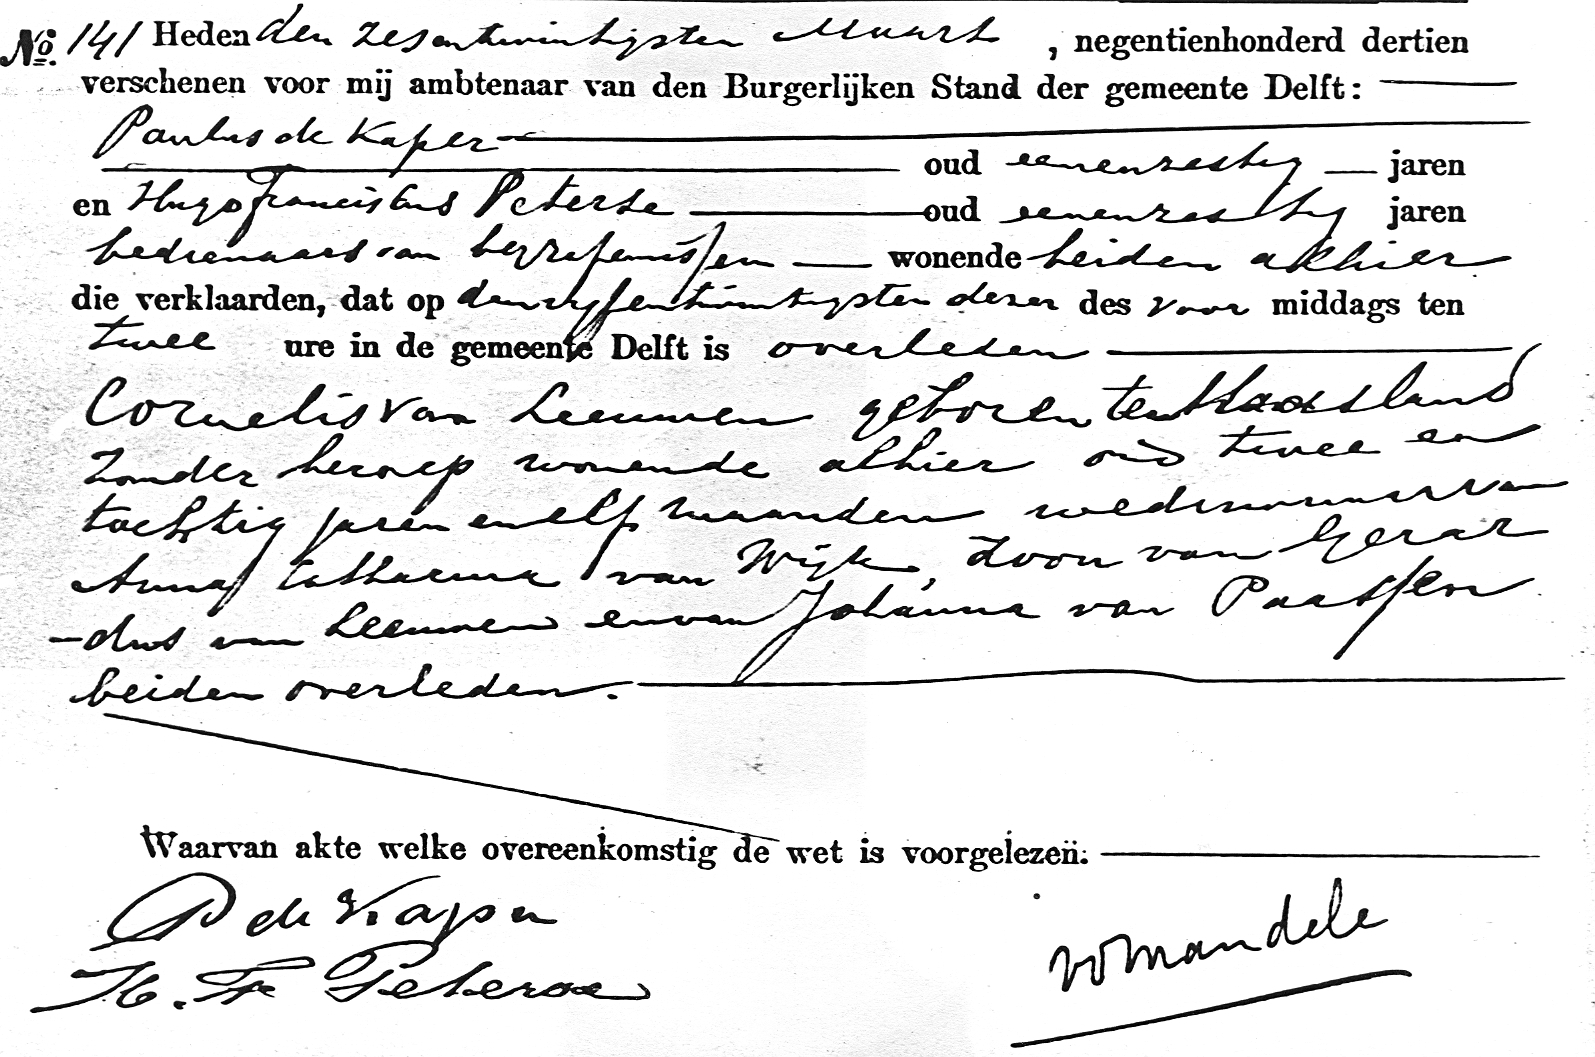 No. 141 Heden den zesentwintigsten Maart, negentienhonderd dertien
verschenen voor mij ambtenaar van den Burgerlijken Stand der gemeente Delft:
Paulus de Kaper
oud eenenzestig jaren
en Hugo Franciscus Peterse oud eenenzestig jaren
bedienaars van begrafenissen wonende beiden alhier
die verklaarden, dat op den vyfentwintigsten dezer des voor middags ten
twee ure in de gemeente Delft is overleden
Cornelis van Leeuwen geboren te Maasland
zonder beroep wonende alhier oud twee en
tachtig jaren en elf maanden weduwnaar van
Anna Catharina van Wijk, zoon van Gerar
-dus van Leeuwen en van Johanna van Paassen
beiden overleden.
Waarvan akte welke overeenkomstig de wet is voorgelezen.
P de Kaper
H. F. Peterse